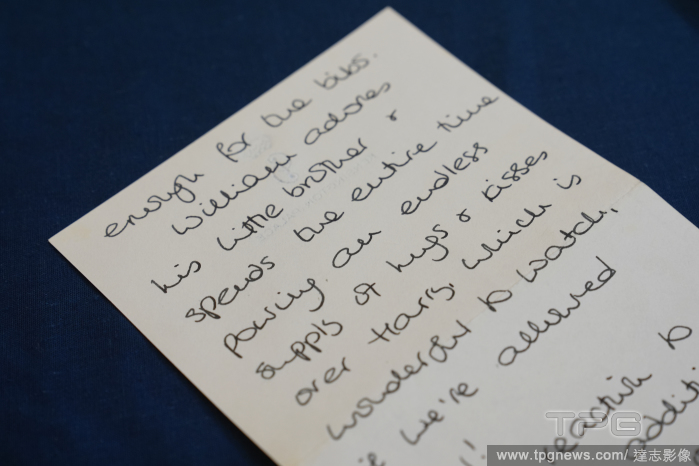 enough for the kiks.
William adores
his little brother &
spends the entire time
pouring an endless
supply of hugs & kisses
over Harry, which is
wonderful to watch.
we're allowed
reaction to
additi
TPG
www.tpgnews.com/ 達志影像